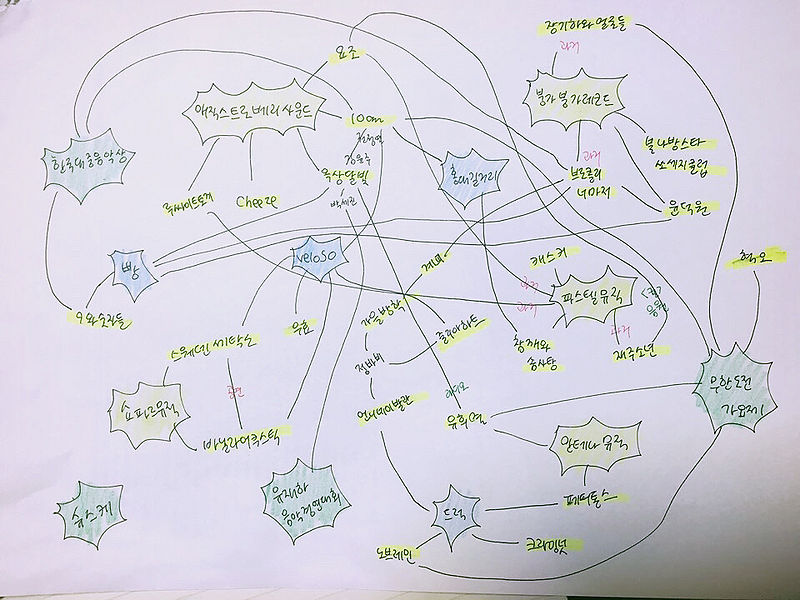 장기하와 얼굴들
과거
요조
붕가붕가레코드
매직스트로베리 사운드
10cm
권정열
김윤주
과거
불나방스타
쏘세지클럽
한국대중음악상
옥상달빛
박세진
홍대길거리
브로콜리
너마저
루싸이트토끼
Cheeze
윤덕원
빵
veloso
계피
캐스커
혁오
과거
과거
파스텔 뮤직
9와 숫자들
우효
가을방학
줄리아하트
스웨덴 세탁소
정바비
짙은
과거
재주소년
무한도전
가요제
쇼파르뮤직
공연
언니네이발관
라디오
유희열
바닐라어쿠스틱
안테나 뮤직
슈스케
유재하
음악경연대회
드럭
페퍼톤스
노브레인
크라잉넛